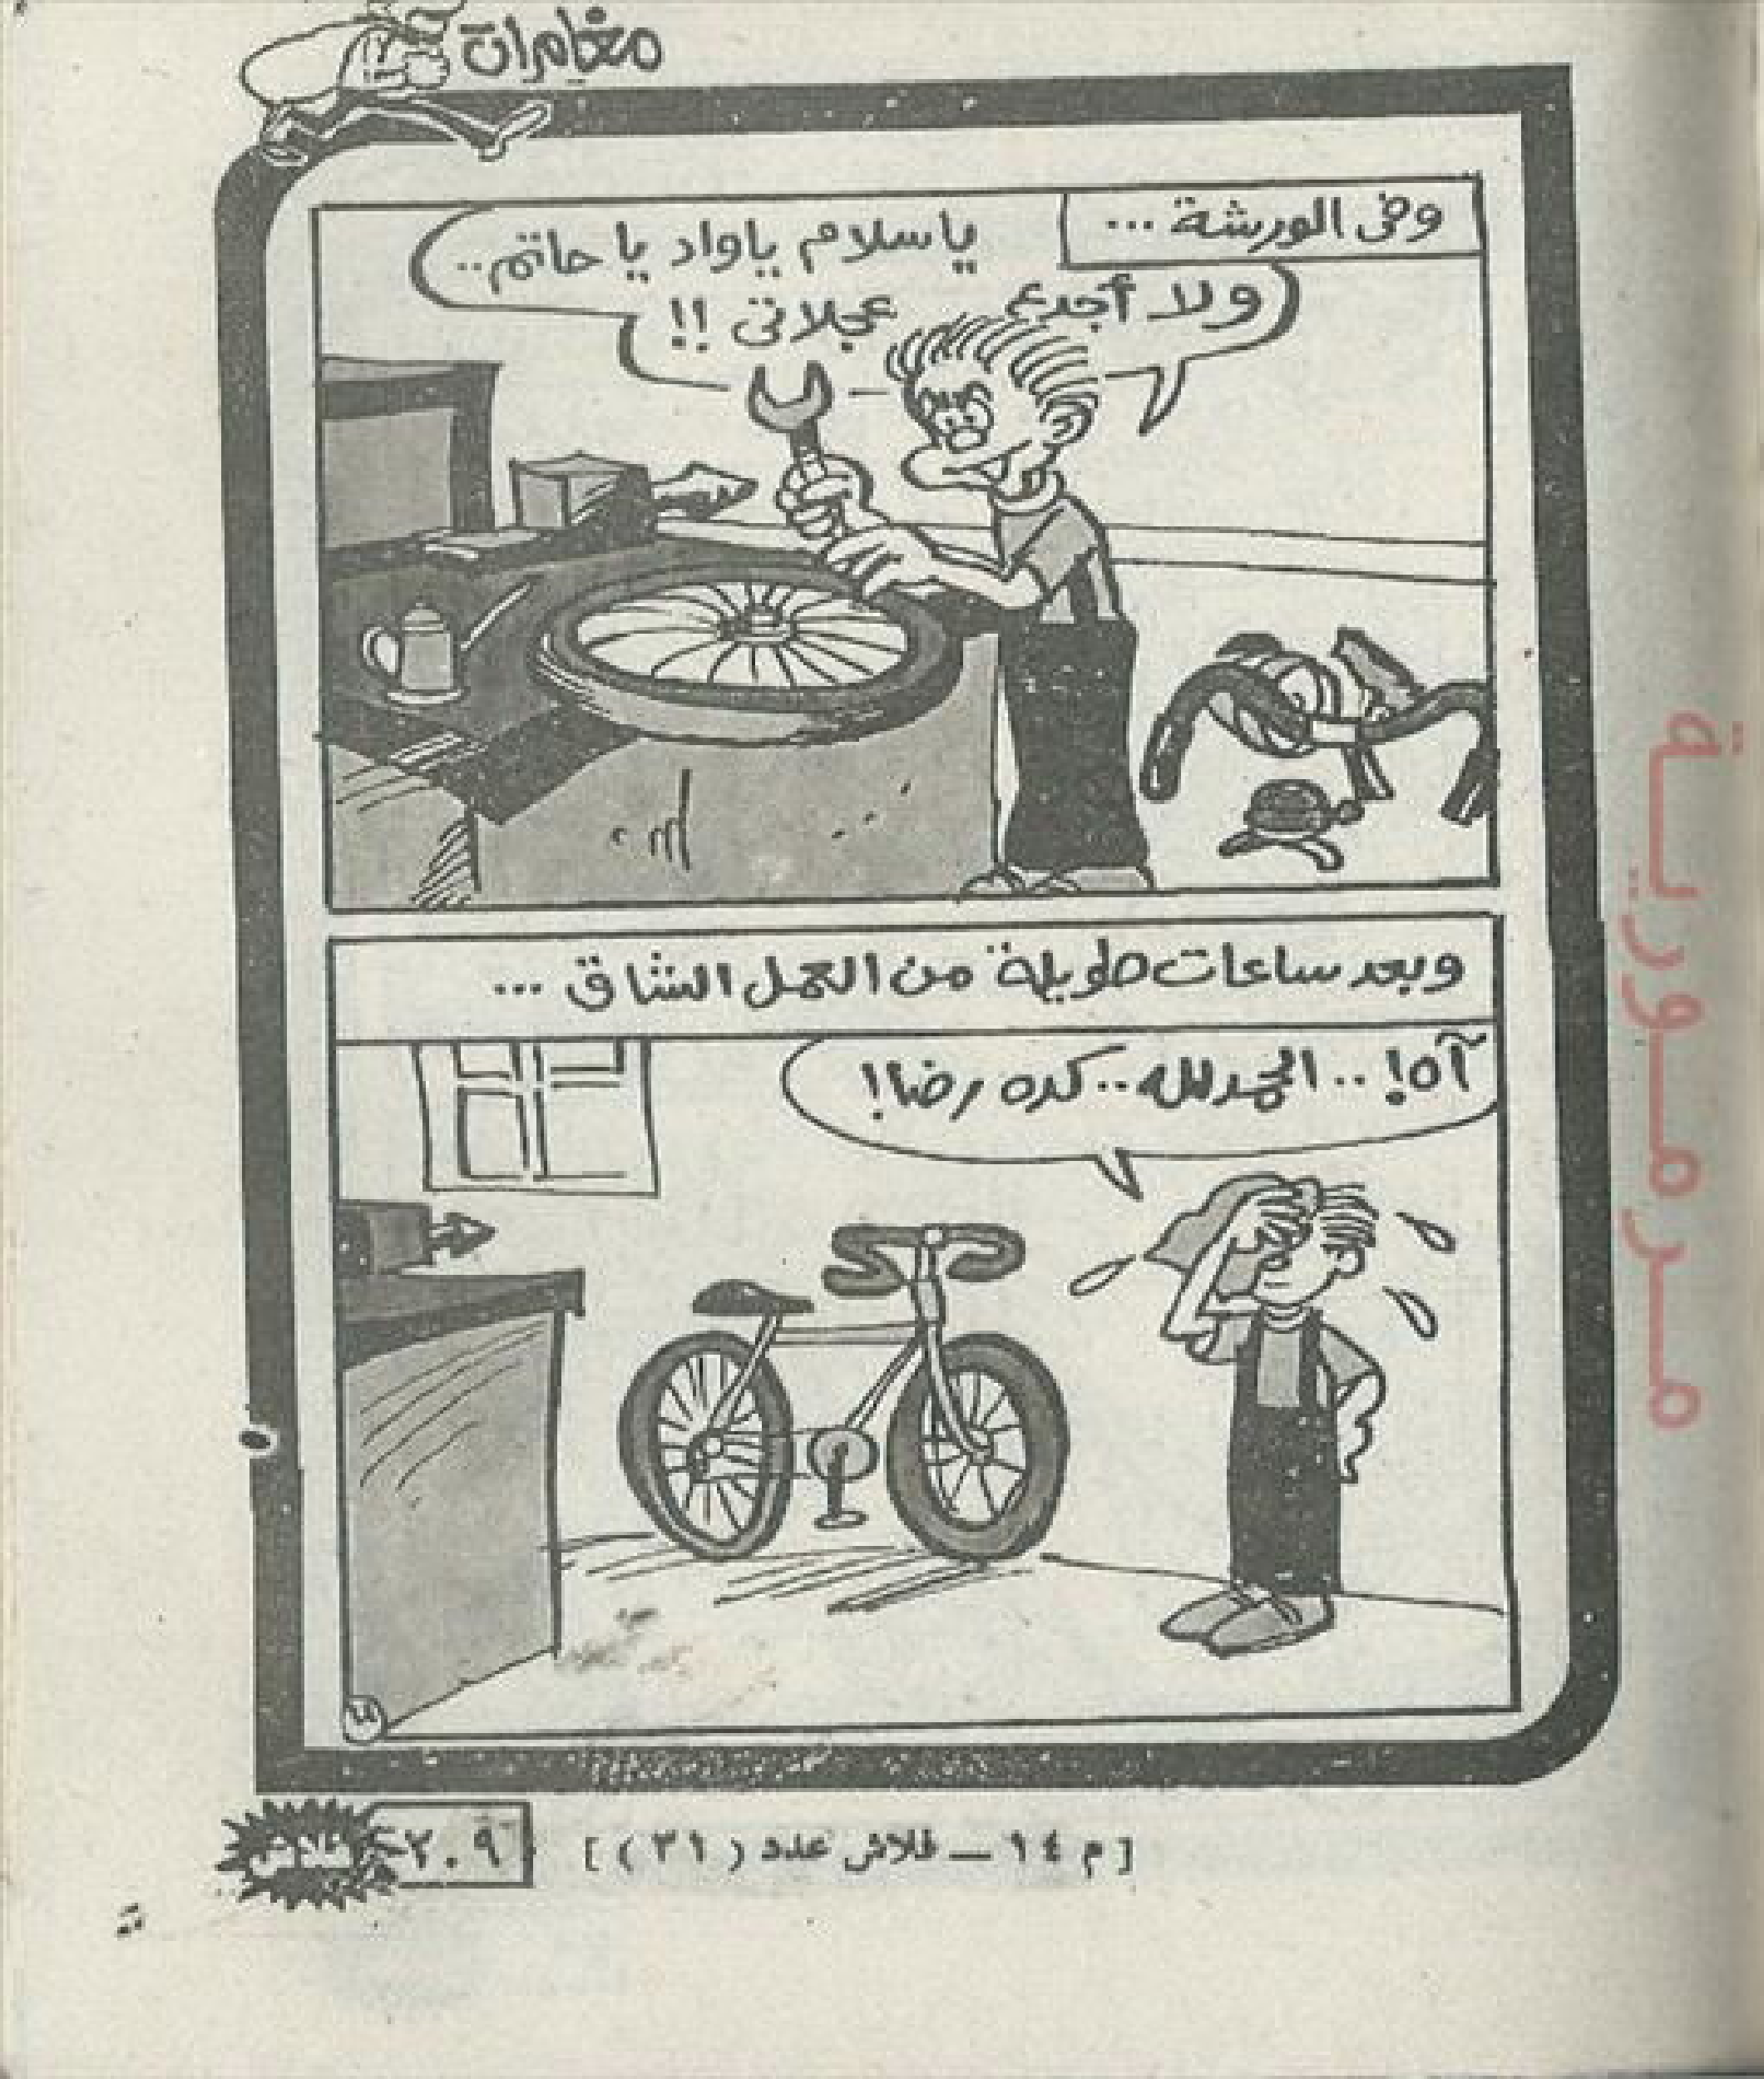 مغامرات
وفى الورشة ...
ياسلام ياواد يا حاتم ..
ولا أجدع عجلاتى !!
وبعد ساعات طويلة من العمل الشاق ...
آه! .. الحمد لله .. كده رضا!
[ م ١٤ — فلاش عدد ( ٣١ ) ]
٢٠٩
مرمورية